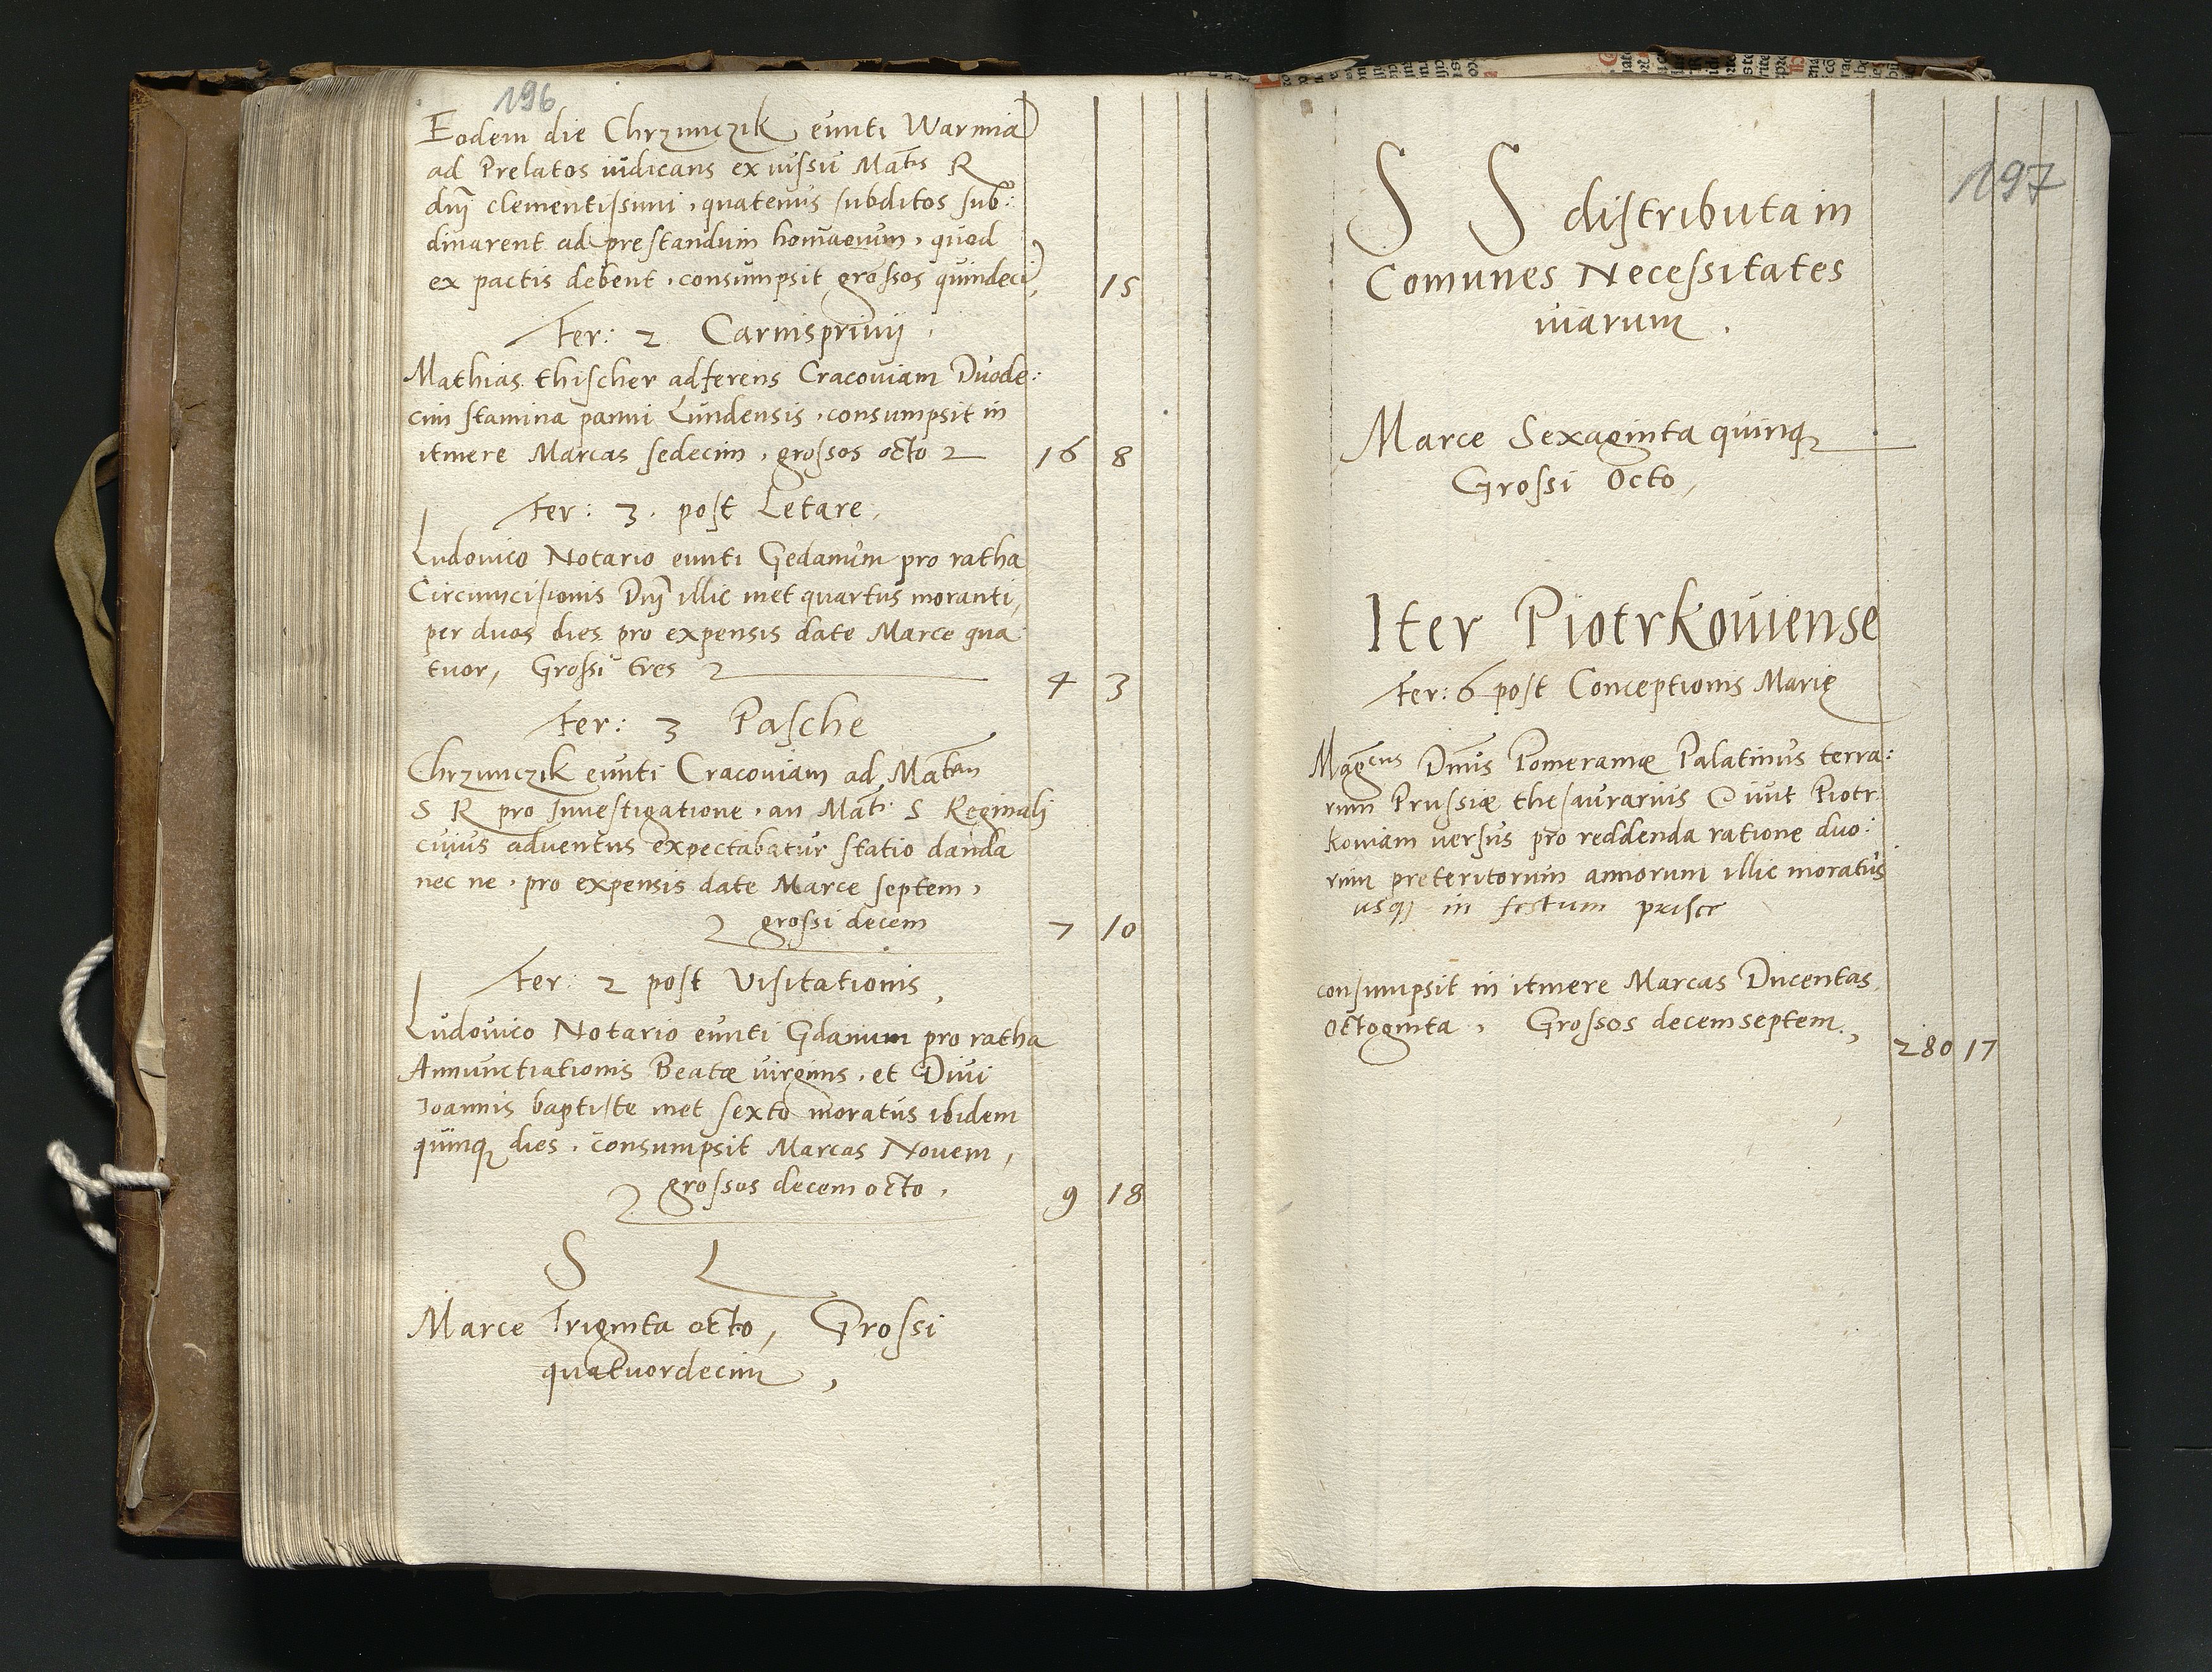 196
Eodem die Chrzunczik eunti Warmiã
ad Prelatos iudicans ex iussu Matis R
dnĩ clementissimi, quatenus subditos sub:
dinarent ad prestandum homagium, quod
ex pactis debent, consumpsit grossos quindeci 15
Fer: 2 Carnisprivij.
Mathias thischer adferens Cracoviam Duode:
cim stamina panni Lundensis, consumpsit in
itinere Marcas sedecim, grossos octo 16 8
Fer: 3. post Letare,
Ludovico Notario eunti Gedanum pro ratha
Circumcisionis Dnĩ illic met quartus moranti,
per duos dies pro expensis date Marce qua
tuor, Grossi tres 4 3
Fer: 3 Pasche
Chrzunczik eunti Cracoviam ad Matem
S R pro Investigatione, an Mati S Reginali
cuius adventus expectabatur statio danda
nec ne, pro expensis date Marce septem,
grossi decem 7 10
Fer: 2 post Visitationis,
Ludovico Notario eunti Gdanum pro ratha
Annunctiationis Beatæ virginis, et Divi
Joannis baptiste met sexto moratus ibidem
quinq dies, consumpsit Marcas Novem,
grossos decem octo. 9 18
S L
Marce Triginta octo, Grossi
quatuordecim,
197
S S distributa in
Comunes Necessitates
viarum.
Marce Sexaginta quinq
Grossi Octo,
Iter Piotrkoviense
Fer: 6 post Conceptionis Marię
Magcus Dnus Pomeraniæ Palatinus terra:
rum Prussiæ thesaurarius ivit Piotr:
koviam versus pro reddenda ratione duo:
rum preteritorum annorum illic moratus
usq in festum prisce
consumpsit in itinere Marcas Ducentas
Octoginta, Grossos decemseptem, 280 17